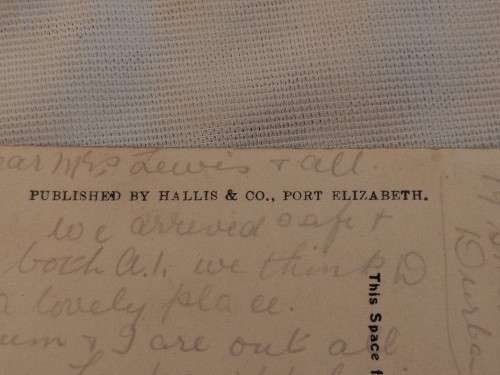 ar Mrs Lewis & all.
PUBLISHED BY HALLIS & CO., PORT ELIZABETH.
we arrived safe &
both A.1. we think D
a lovely place.
um & I are out all
This Space f
Durba